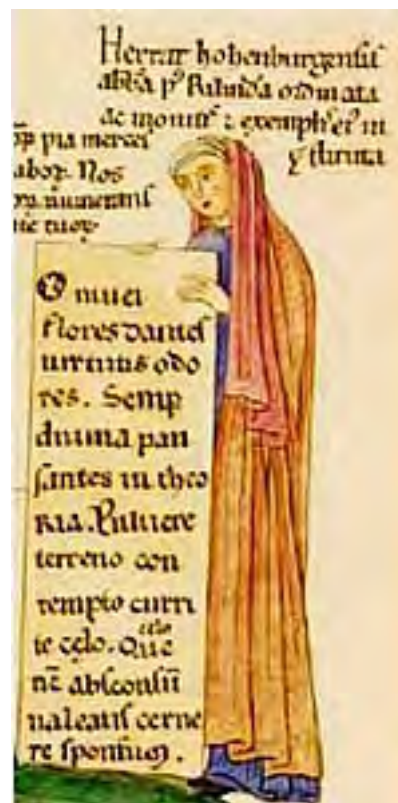 Herrat hohenburgensis
abba p' Rilinda ordinata
ac monitis & exemplis ei' in
stituta
pia merces
labor. Nos
numerans
O nivei
flores dantes
virtutis odo
res. Semp
divina pau
santes in theo
ria. Pulvere
terreno con
tempto curri
te celo. Que
celo
nc absconsum
valeatis cerne
re sponsum.